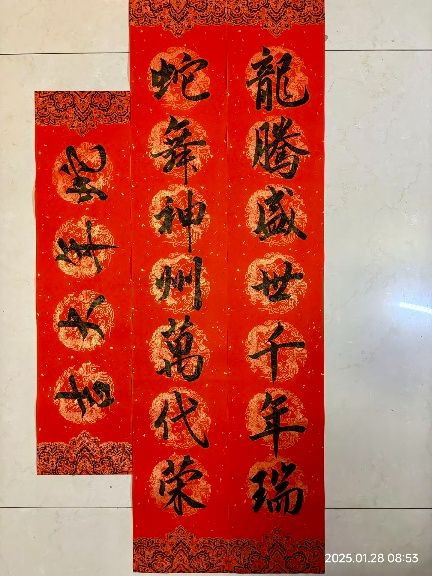 龍騰盛世千年瑞
蛇舞神州萬代荣
蛇年大吉
2025.01.28 08:53